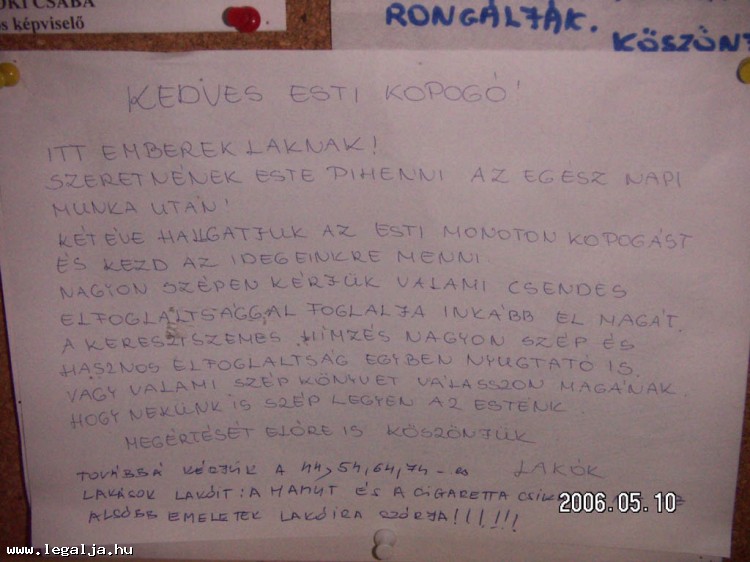 OKI CSABA
s képviselő
RONGÁLJÁK.
KÖSZÖN
KEDVES ESTI KOPOGÓ!
ITT EMBEREK LAKNAK!
SZERETNÉNEK ESTE PIHENNI AZ EGÉSZ NAPI
MUNKA UTÁN!
KÉT ÉVE HALLGATJUK AZ ESTI MONOTON KOPOGÁST
ÉS KEZD AZ IDEGEINKRE MENNI
NAGYON SZÉPEN KÉRJÜK VALAMI CSENDES
ELFOGLALTSÁGGAL FOGLALJA INKÁBB EL MAGÁT.
A KERESZTSZEMES HÍMZÉS NAGYON SZÉP ÉS
HASZNOS ELFOGLALTSÁG EGYBEN NYUGTATÓ IS.
VAGY VALAMI SZÉP KÖNYVET VÁLASSZON MAGÁNAK.
HOGY NEKÜNK IS SZÉP LEGYEN AZ ESTÉNK
MEGÉRTÉSÉT ELŐRE IS KÖSZÖNJÜK
LAKÓK
TOVÁBBÁ KÉRJÜK A 44, 54, 64, 74-es
LAKÁSOK LAKÓIT: A HAMUT ÉS A CIGARETTA CSIK
ALSÓBB EMELETEK LAKÓIRA SZÓRJA!!!!!!
2006.05.10
www.legalja.hu